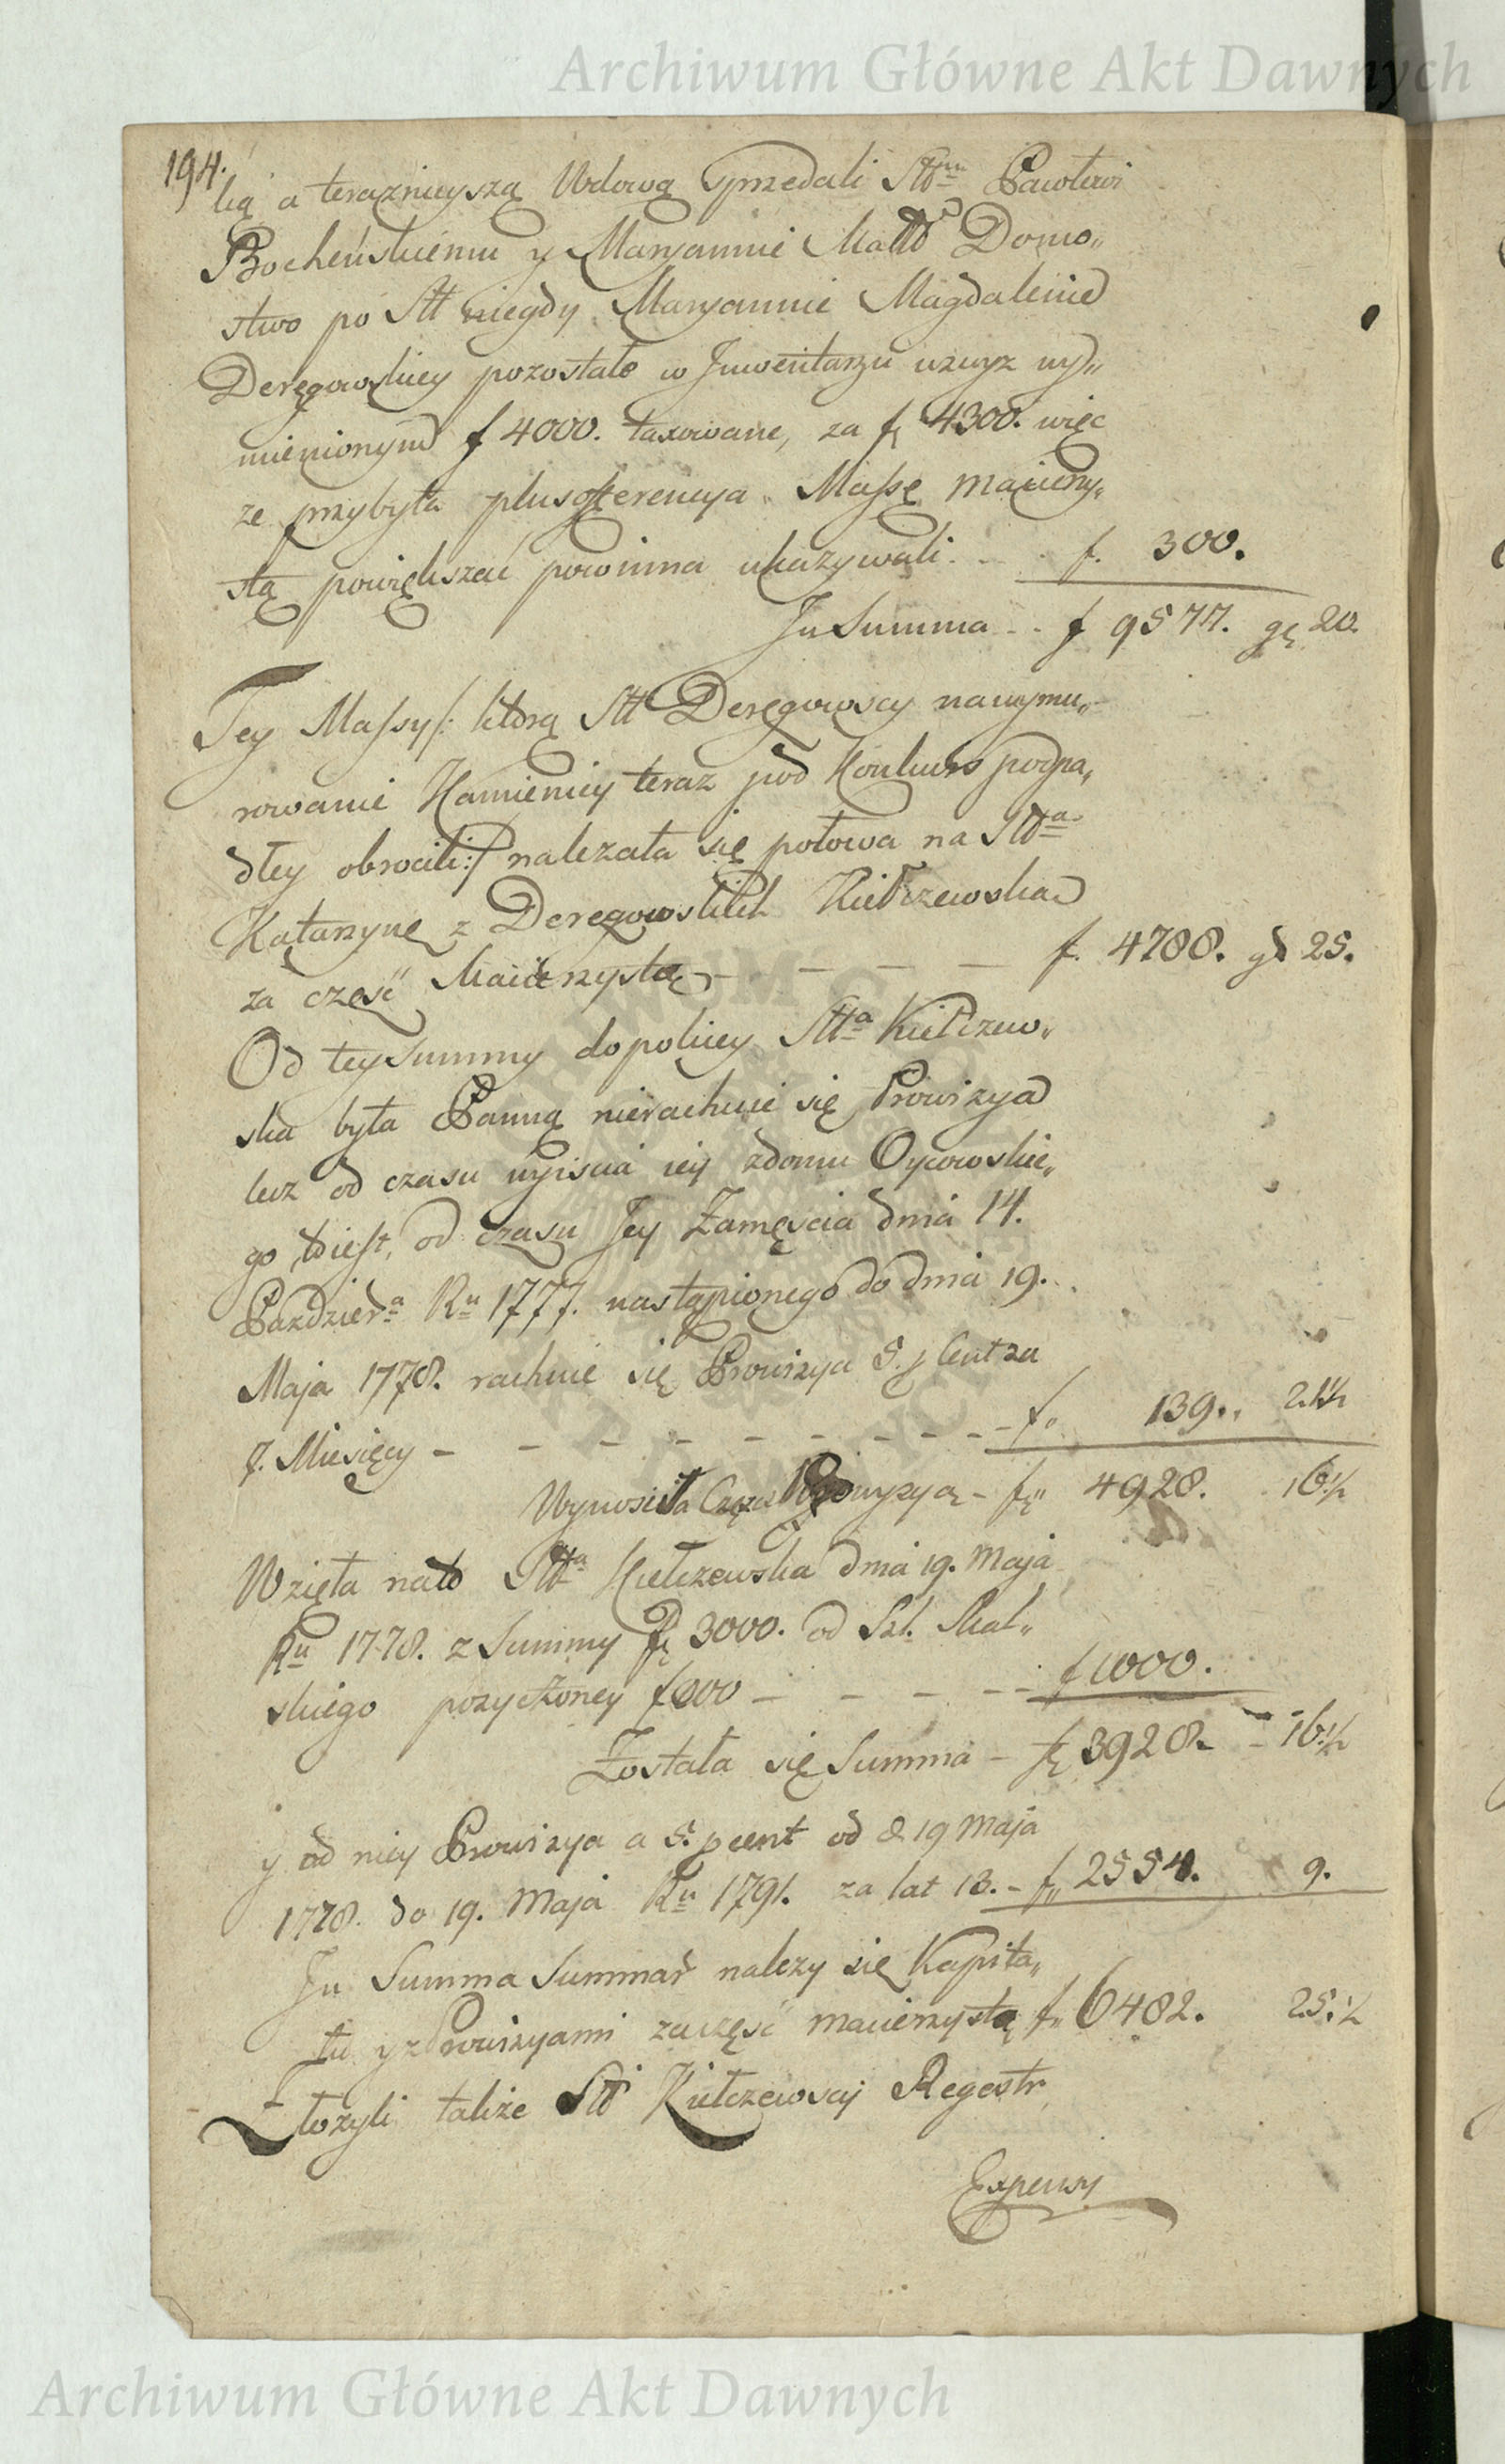 Archiwum Główne Akt Dawnych
194.
ką a teraznieyszą Wdową sprzedali Sttm Pawłowi
Bocheńskiemu y Maryannie Mattō Domo„
stwo po Stt niegdy Maryannie Magdalenie
Deręgowskiey pozostałe w Inwentarzu wzwyz wy„
mienionym f 4000. taxowane, za f 4300. więc
ze przybyła plusofferencya Massę Macierzy„
stą powiększać powinna ukazywali. - - - f. 300.
In Summa - - f 9577. gę 20.
Tey Massy /: którą Stt Deręgowscy na wymu„
rowanie Kamienicy teraz pod Konkurs podpa„
dłey obrocili :/ należała się połowa na Stta
Katarzynę z Deręgowskich Kiełczewską
za częsć Macierzystą - - - - f. 4788. gr 25.
Od tey Summy dopokiey Stta Kiełczew„
ska była Panną nierachuie się Prowizya
lecz od czasu wyiscia iey z domu Oycowskie„
go, to iest, od czasu Jey Zamęscia dnia 14.
Pazdziera Ru 1777. nastąpionego do dnia 19.
Maja 1778. rachuie się Prowizya 5. p Cent za
7. Miesięcy - - - - - - - - - f„ 139„ 21½
Wynosiła Częsć z Prowizyą - f„ 4928. 16½
Wzięła na to Stta Kiełczewska dnia 19. Maja
Ru 1778. z Summy f 3000. od Szl. Skal„
skiego pozyczoney f000 - - - - - f 1000.
Została się Summa - f 3928 - - 16½
y od niey Prowizya a 5. p cent od d. 19 Maja
1778. do 19. Maja Ru 1791. za lat 13. - f„ 2554. 9.
In Summa Summar należy się Kapita„
łu y z Prowizyami za częsć macierzystą f„ 6482. 25.½
Złożyli także Stt Kiełczewscy Regestr
Expensy
Archiwum Główne Akt Dawnych